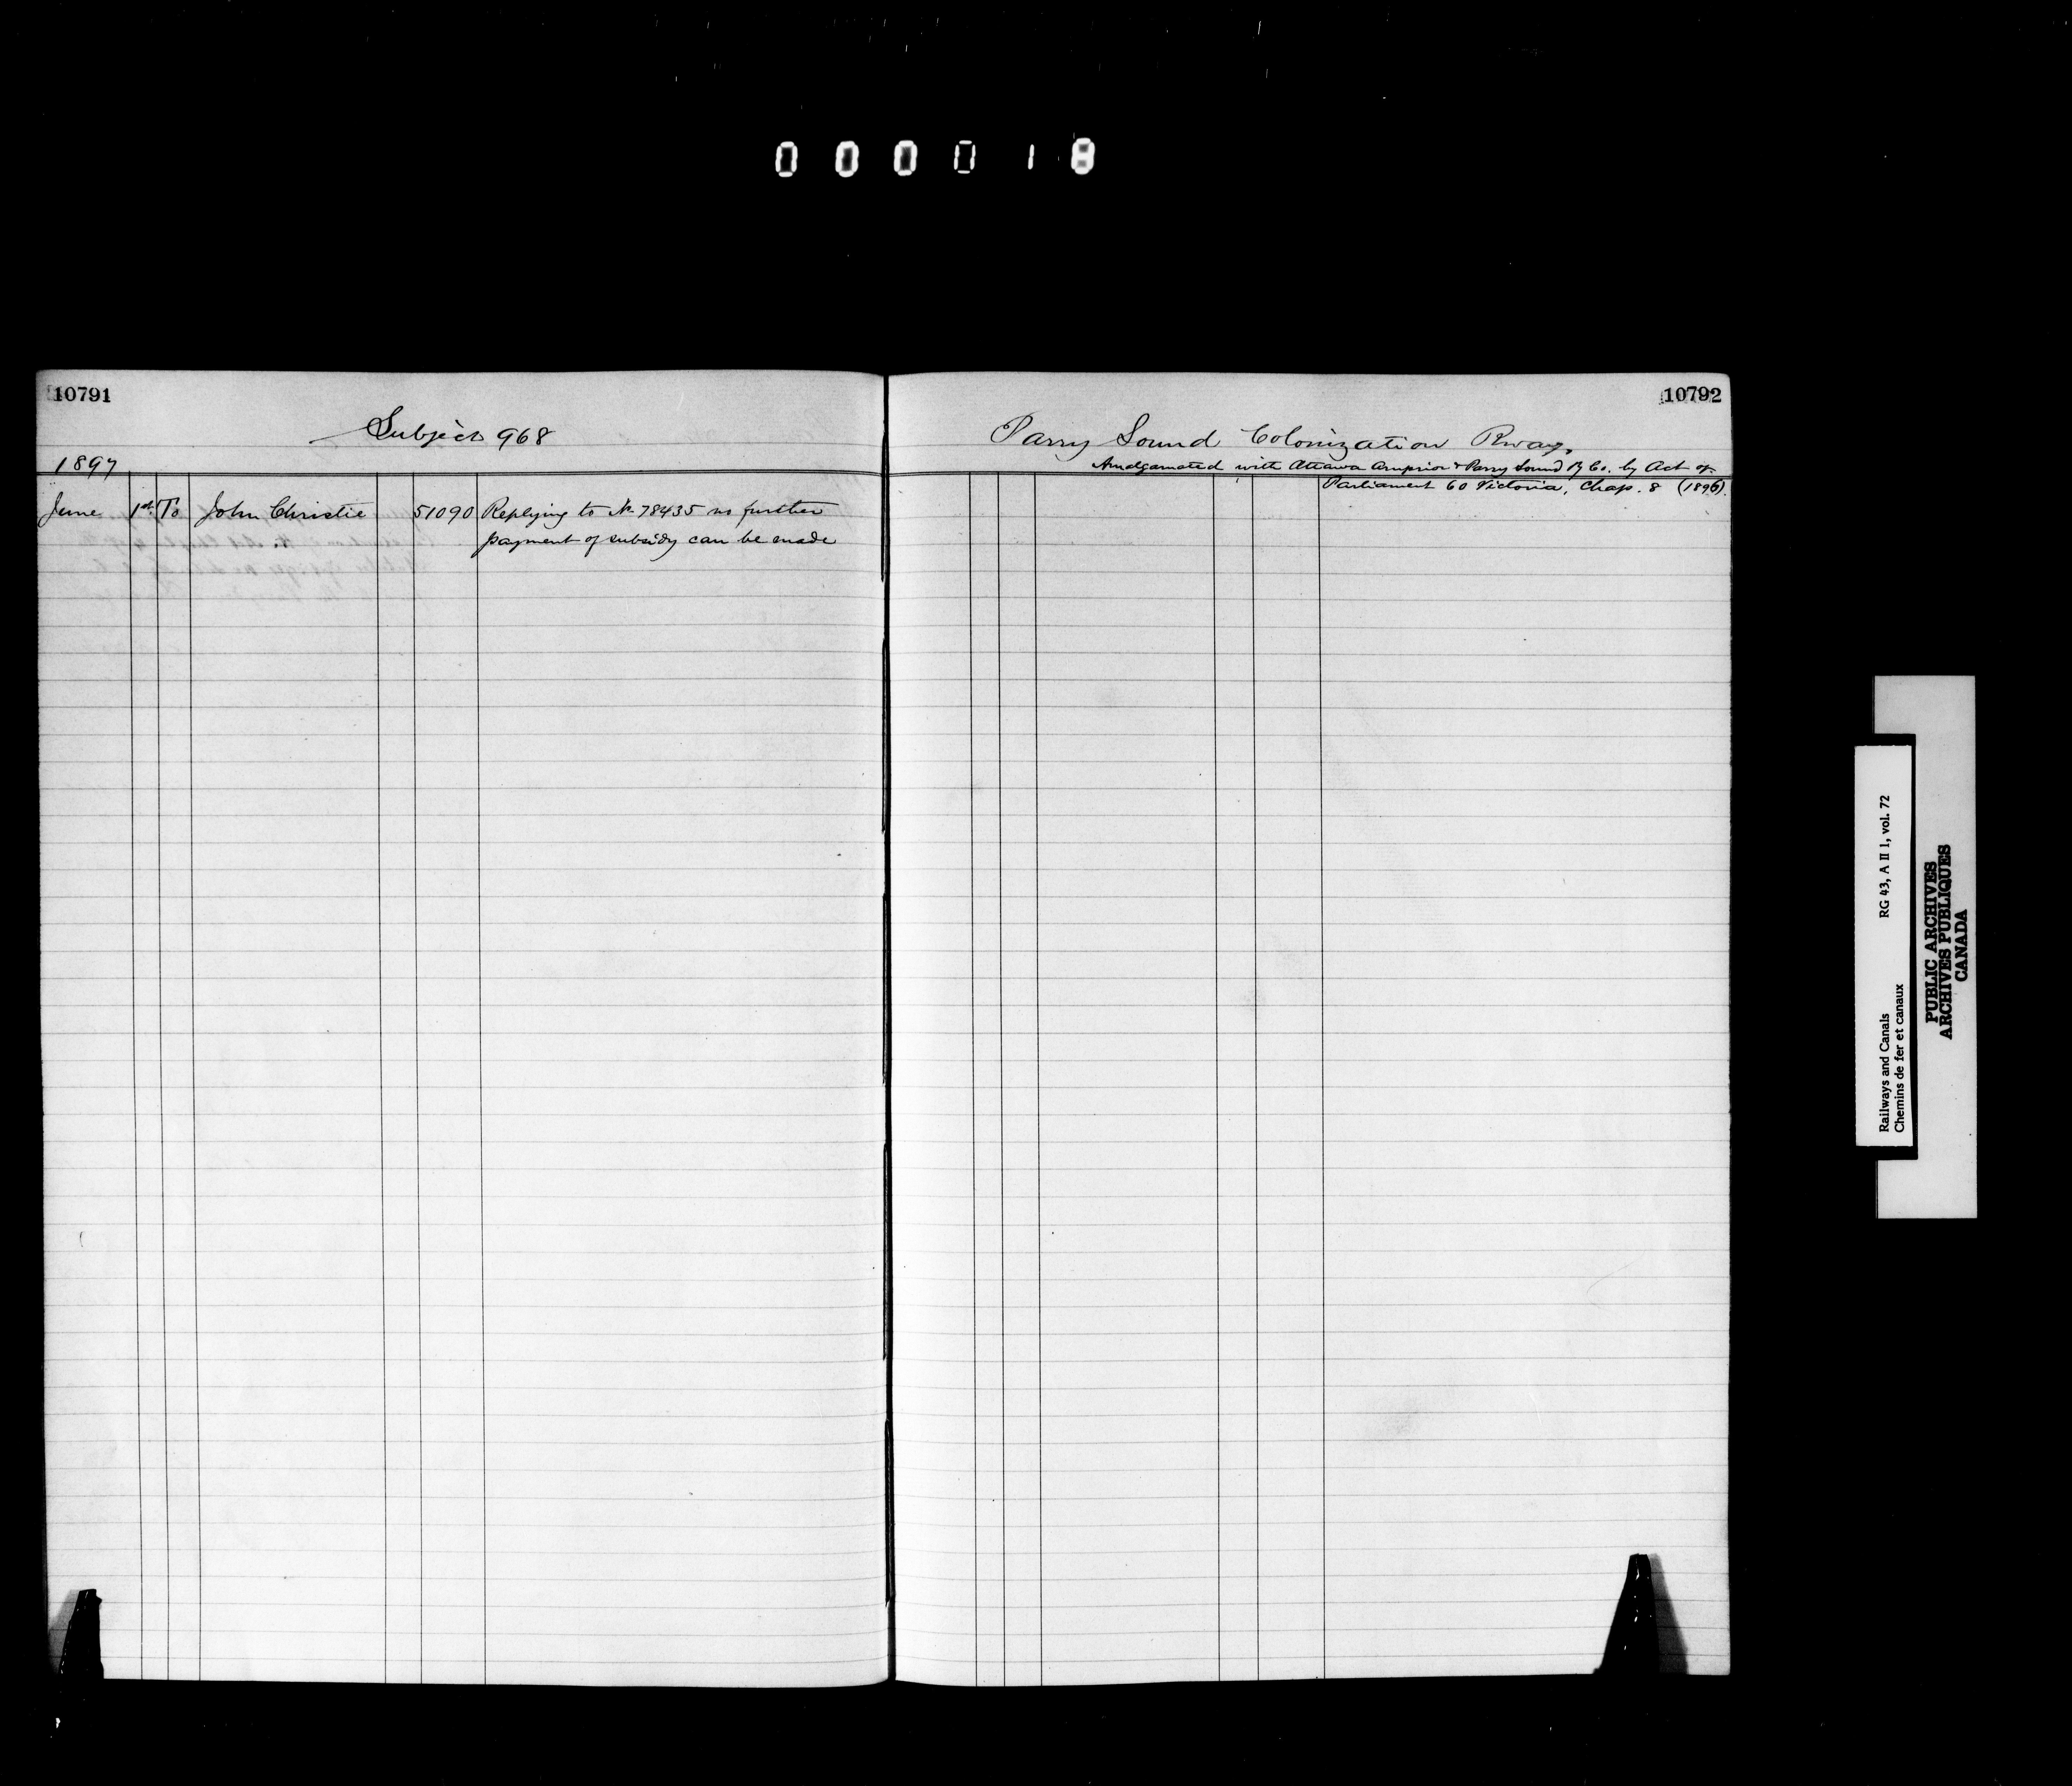 000018
10791
Subject 968
1897
June 1st To John Christie 51090 Replying to No 78435 no further
payment of subsidy can be made
10792
Parry Sound Colonization Rway,
Amalgamated with Ottawa Arnprior & Parry Sound Ry Co. by Act of
Parliament 60 Victoria, Chap. 8 (1896).
Railways and Canals RG 43, A II 1, vol. 72
Chemins de fer et canaux
PUBLIC ARCHIVES
ARCHIVES PUBLIQUES
CANADA